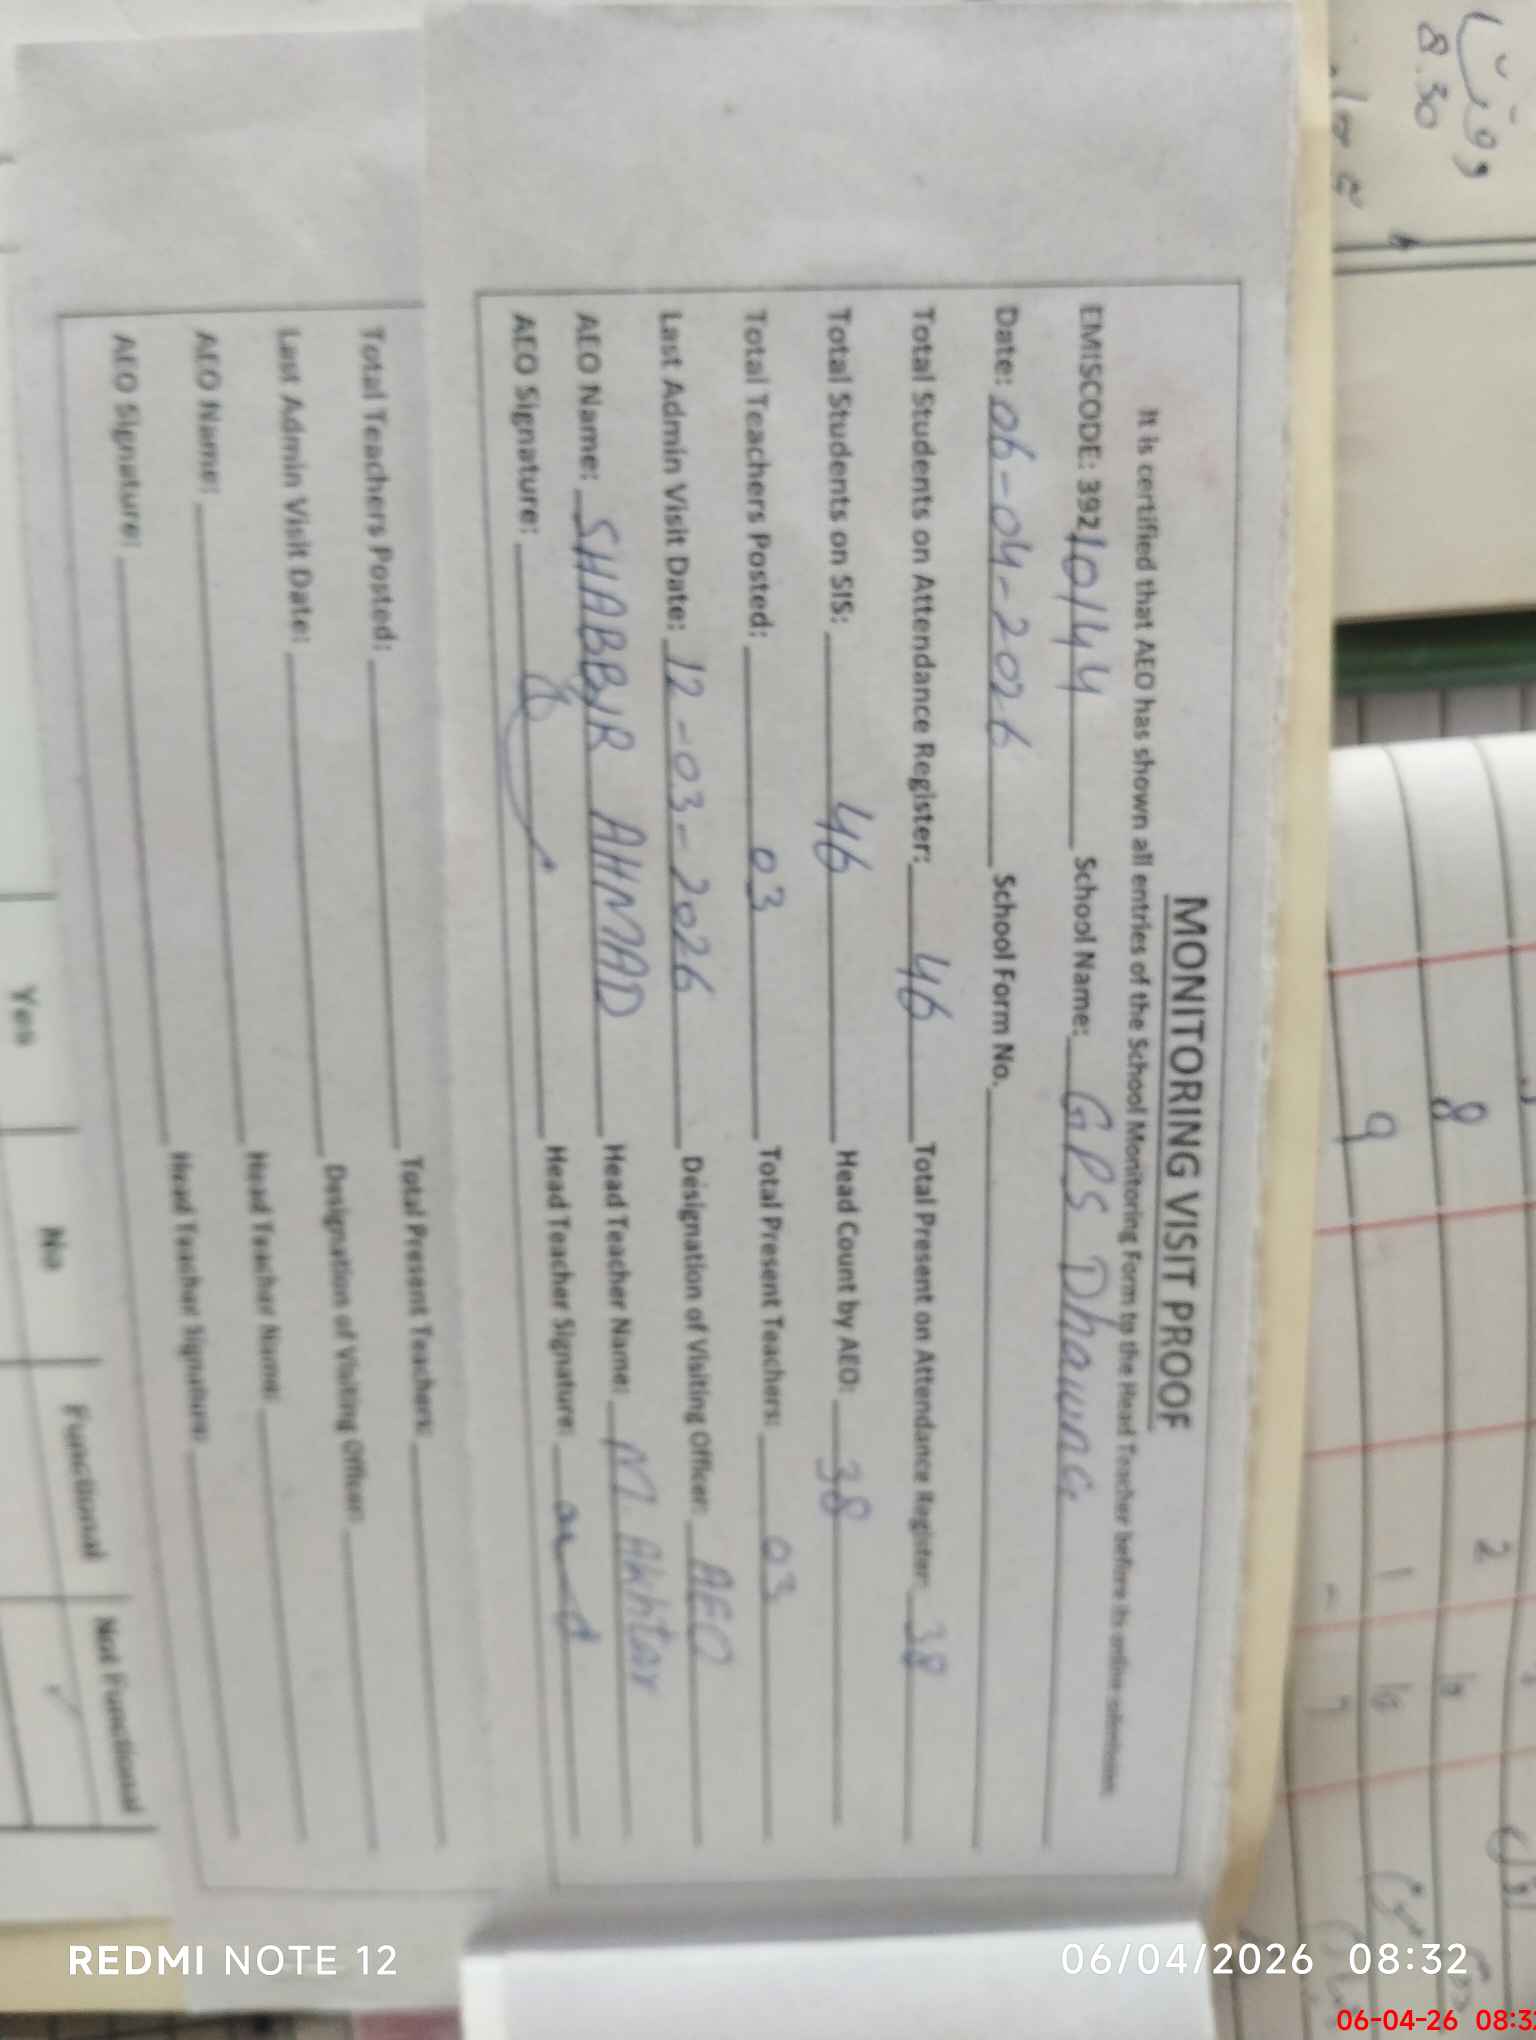 MONITORING VISIT PROOF
It is certified that AEO has shown all entries of the School Monitoring Form to the Head Teacher before its online submission
EMISCODE: 39210144 School Name: GPS Dhawna
Date: 06-04-2026 School Form No.
Total Students on Attendance Register: 46 Total Present on Attendance Register: 38
Total Students on SIS: 46 Head Count by AEO: 38
Total Teachers Posted: 03 Total Present Teachers: 03
Last Admin Visit Date: 12-03-2026 Designation of Visiting Officer: AEO
AEO Name: SHABBIR AHMAD Head Teacher Name: M Akhtar
AEO Signature: Head Teacher Signature:
Total Teachers Posted: Total Present Teachers:
Last Admin Visit Date: Designation of Visiting Officer:
AEO Name: Head Teacher Name:
AEO Signature: Head Teacher Signature:
Yes No Functional Not Functional
8.30
8 2
9 1
REDMI NOTE 12
06/04/2026 08:32
06-04-26 08:3